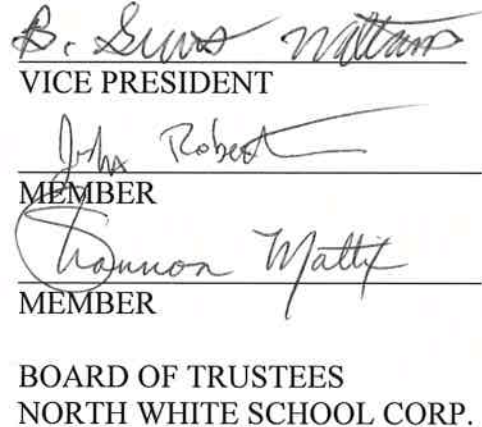 B.
VICE PRESIDENT
John Robert
MEMBER
Shannon Mattix
MEMBER
BOARD OF TRUSTEES
NORTH WHITE SCHOOL CORP.